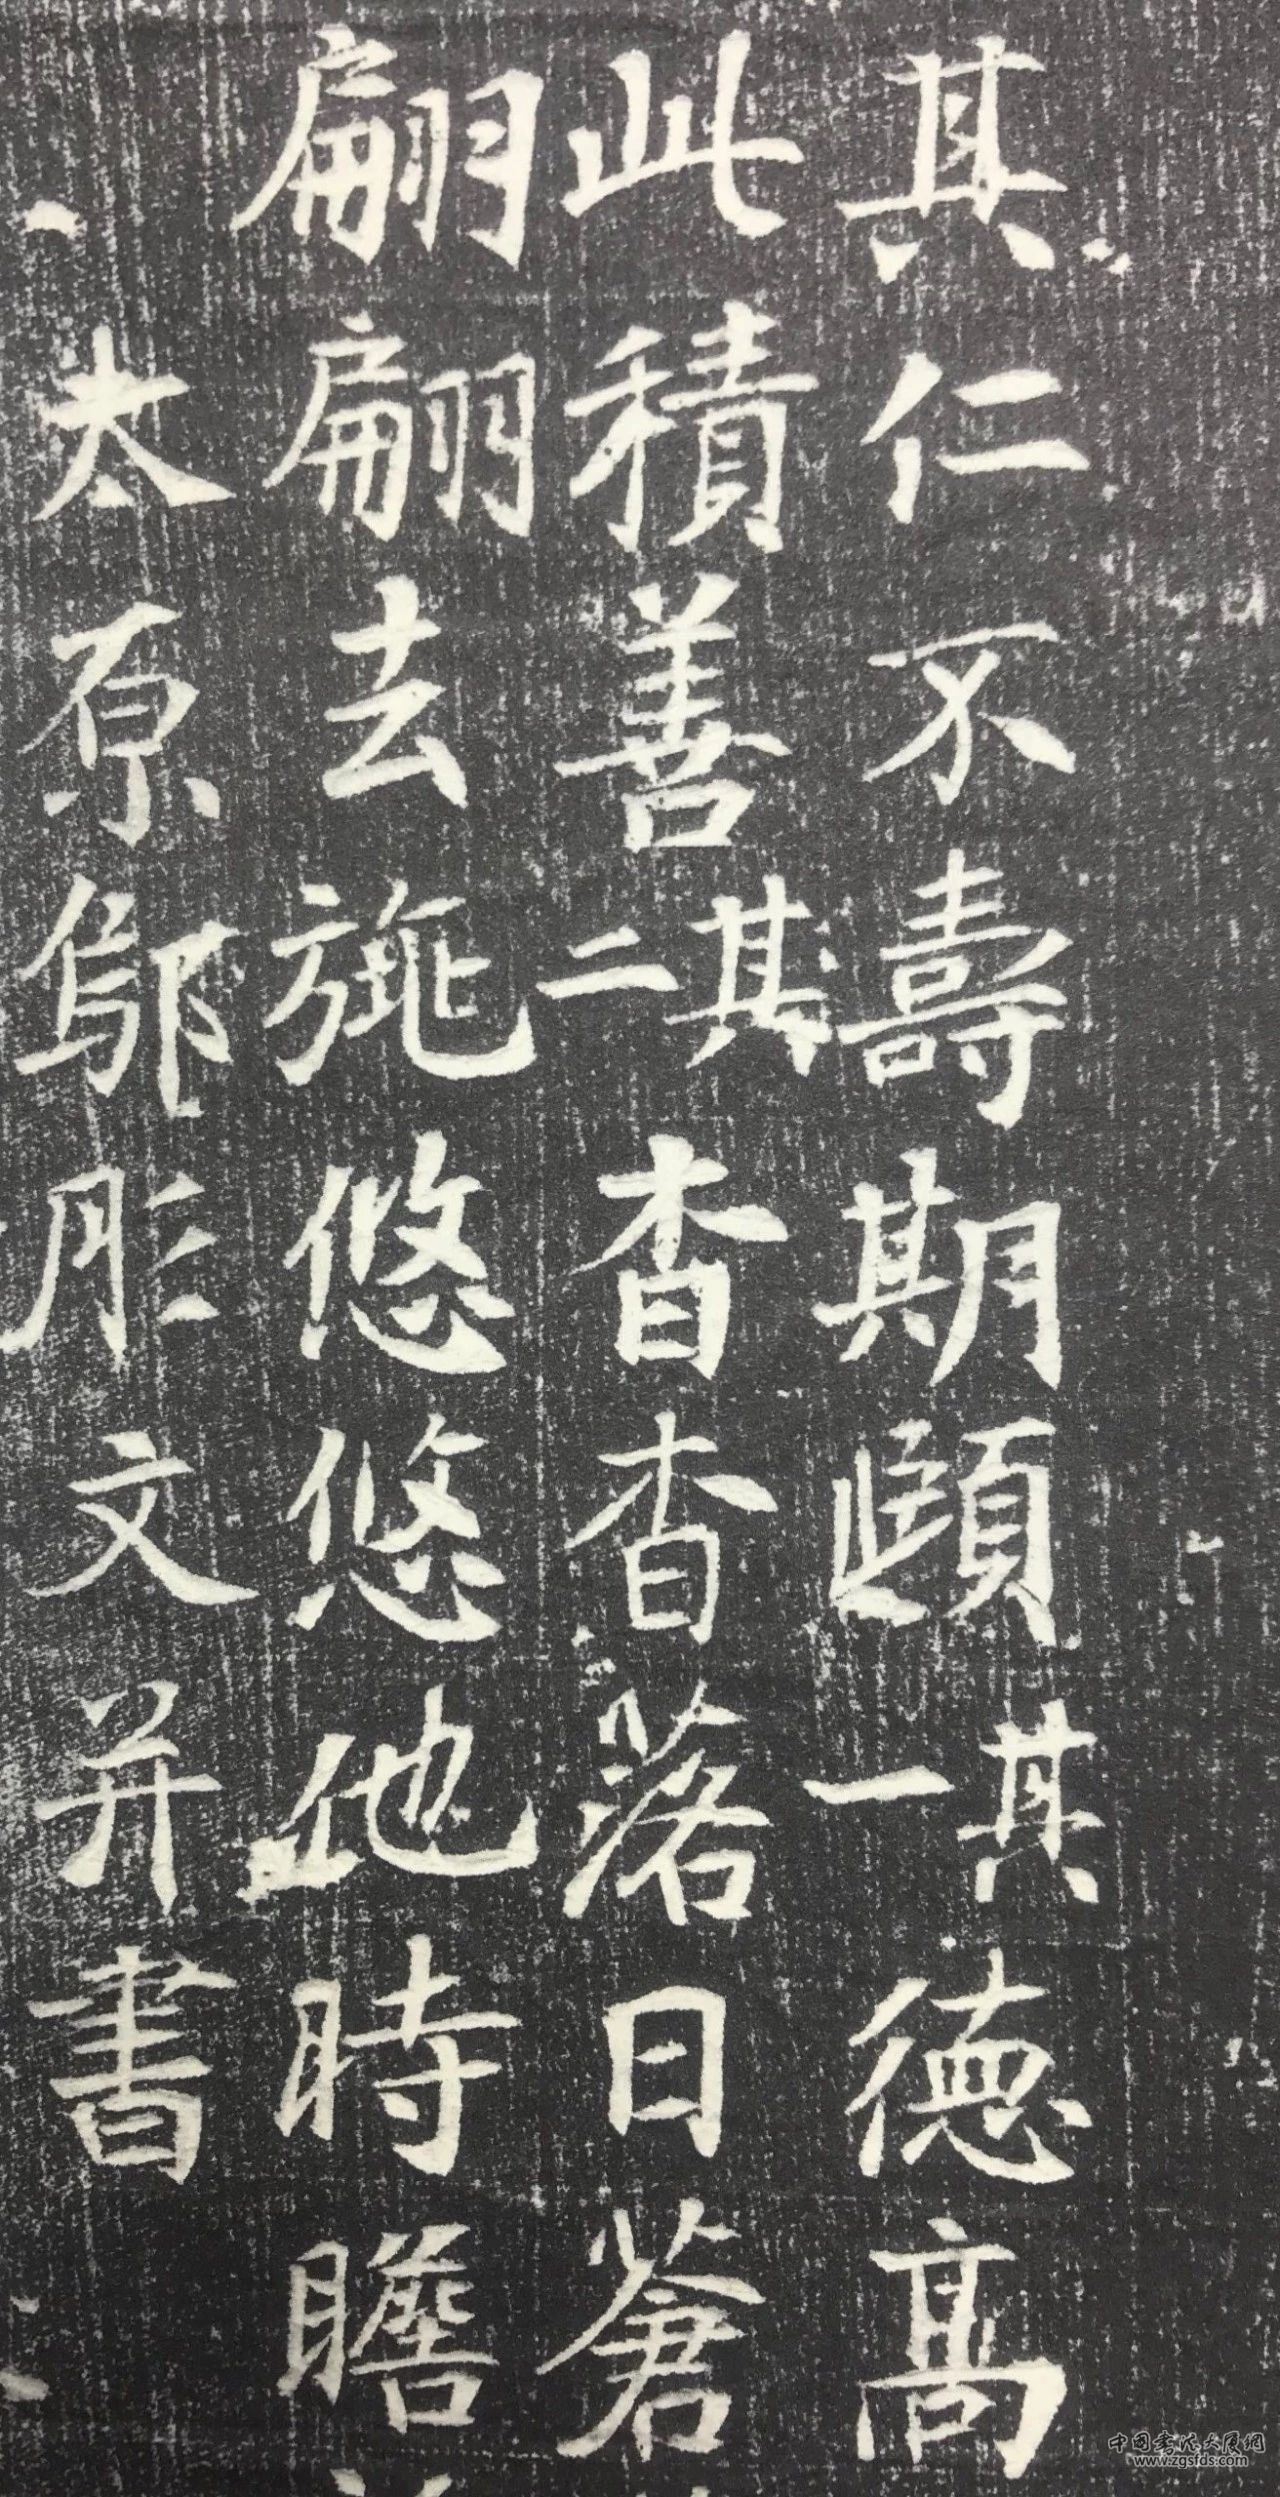 其仁不壽期頤其一德高
此積善其二杳杳落日蒼
翩翩去旐悠悠他時瞻
太原鄔彤文并書
中国书法大展網
www.zgsfds.com